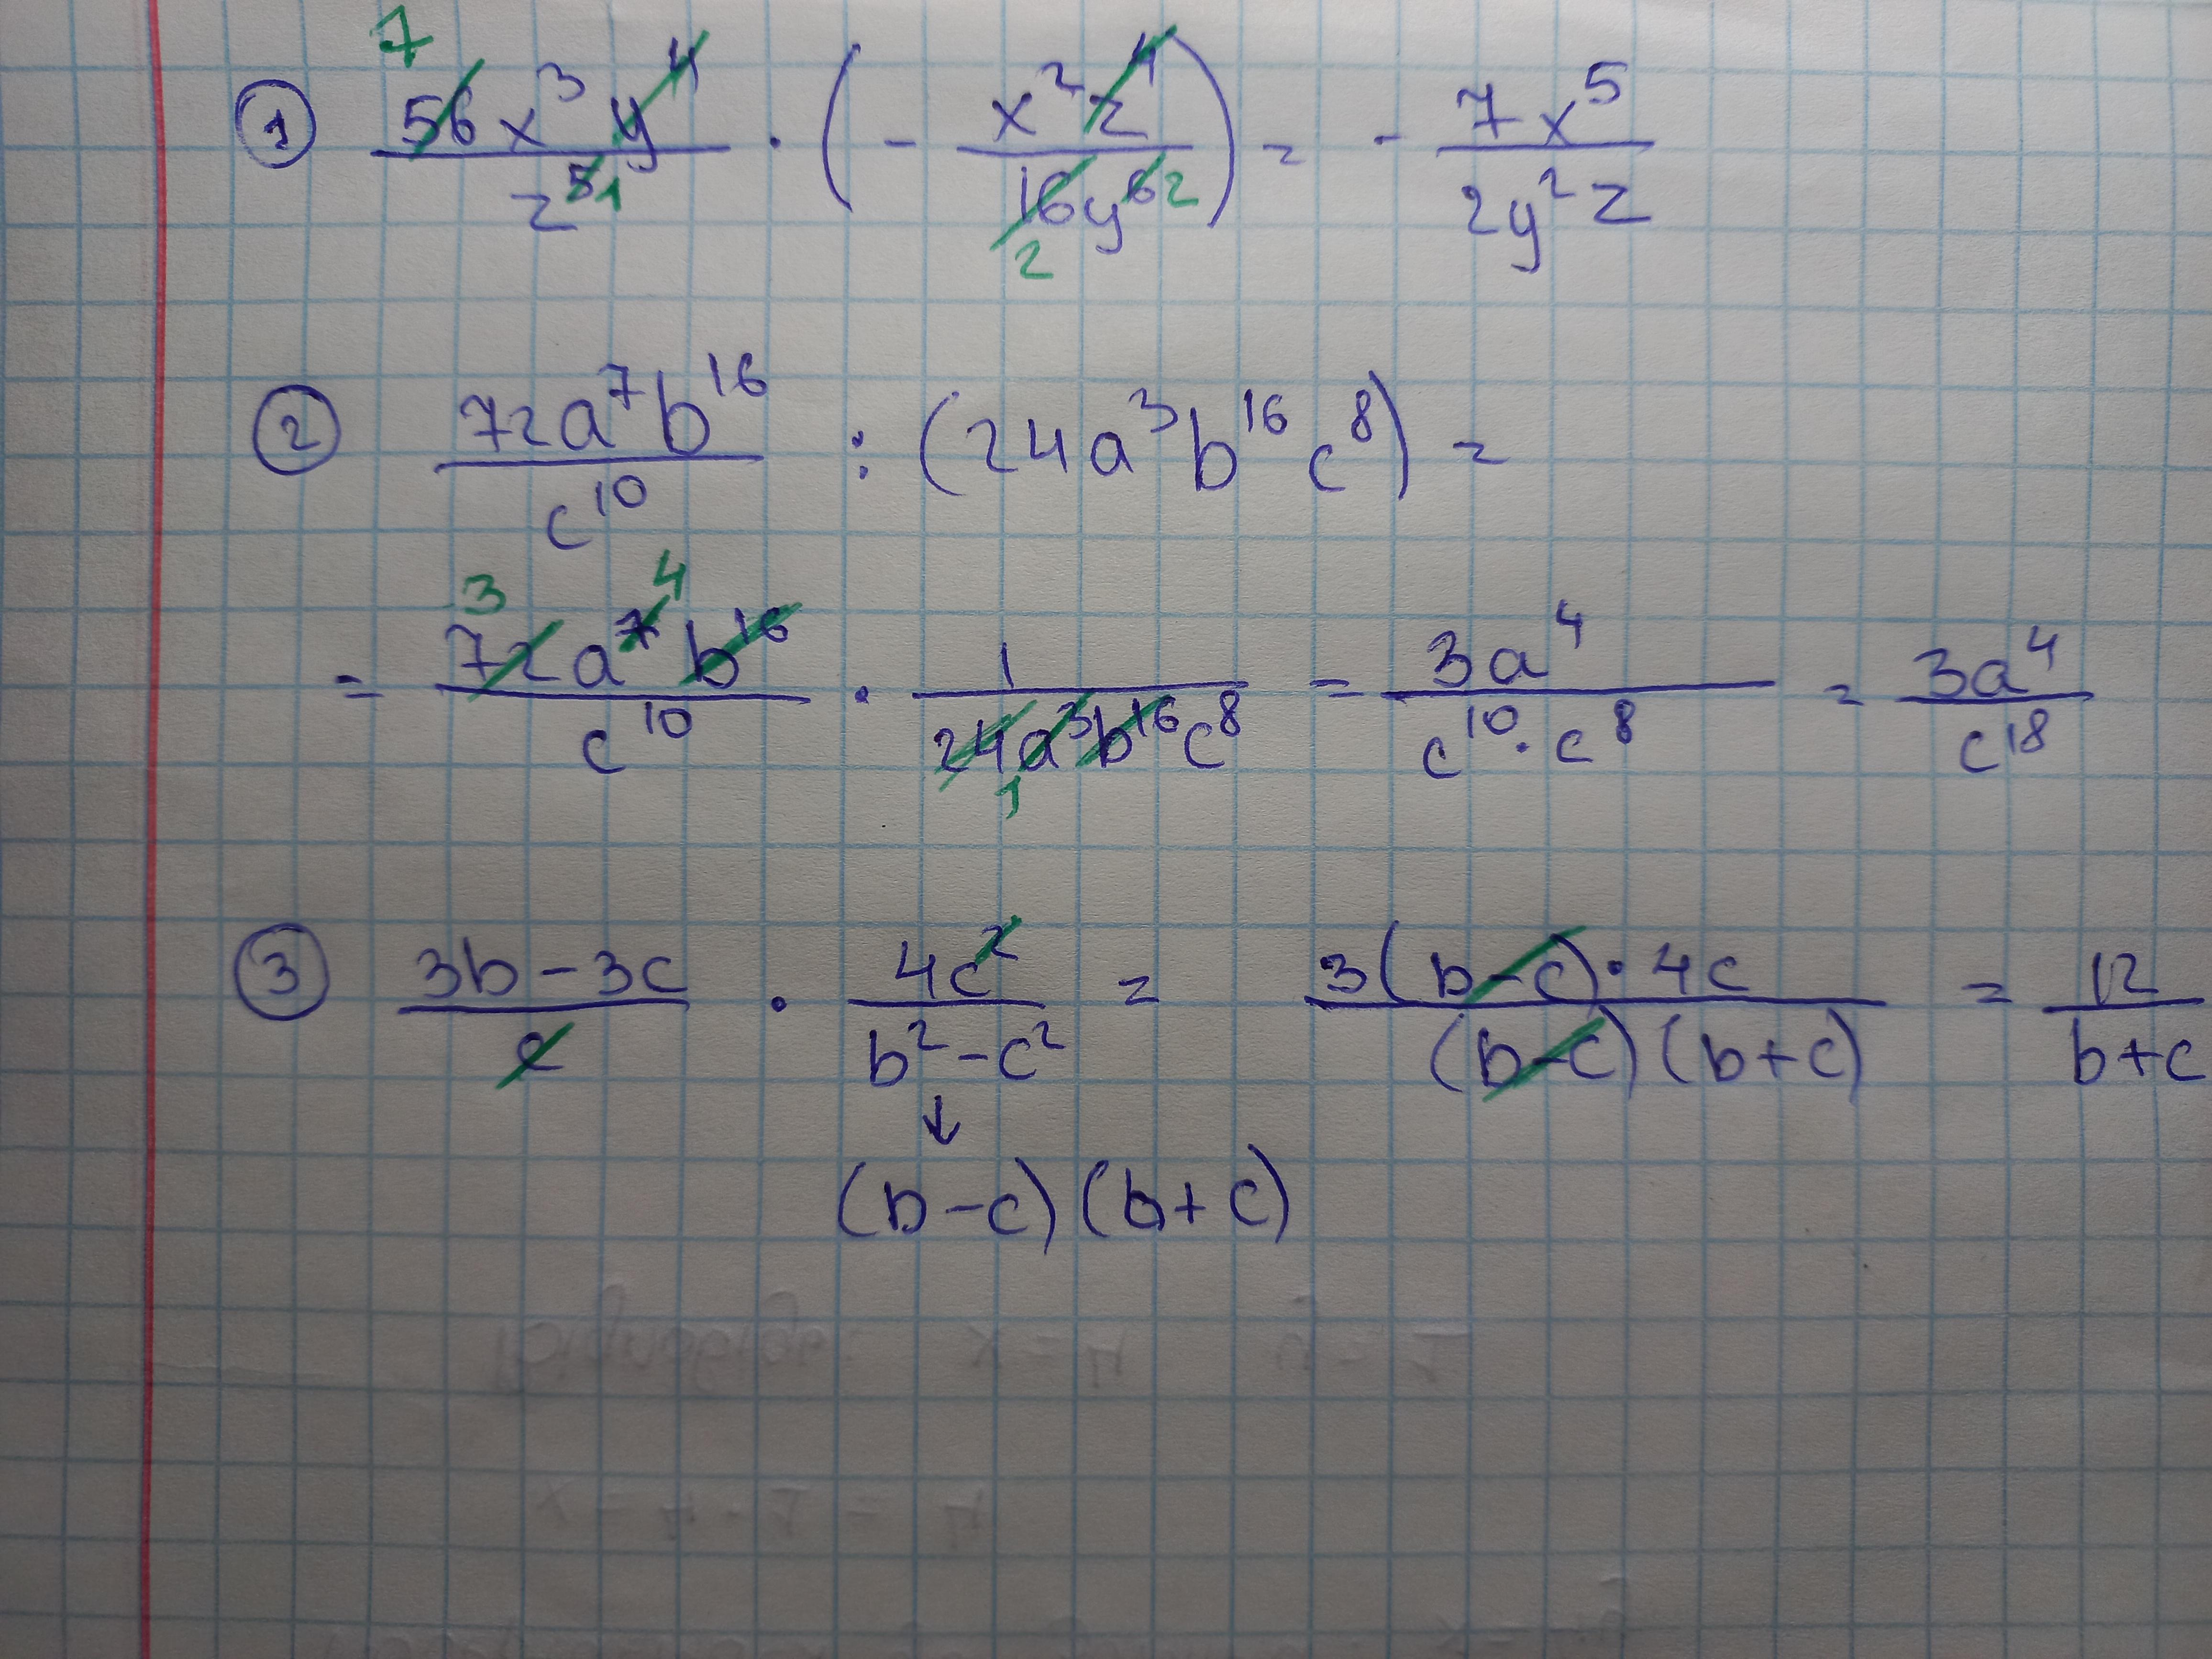 ① 56x³y⁴ / z⁵ · (- x²z⁴ / 16y⁶) = - 7x⁵ / 2y²z
7
1 2
2
② 72a⁷b¹⁶ / c¹⁰ : (24a³b¹⁶c⁸) =
3 4
= 72a⁷b¹⁶ / c¹⁰ · 1 / 24a³b¹⁶c⁸ = 3a⁴ / c¹⁰·c⁸ = 3a⁴ / c¹⁸
1
③ 3b-3c / c · 4c² / b²-c² = 3(b-c)·4c / (b-c)(b+c) = 12 / b+c
↓
(b-c)(b+c)